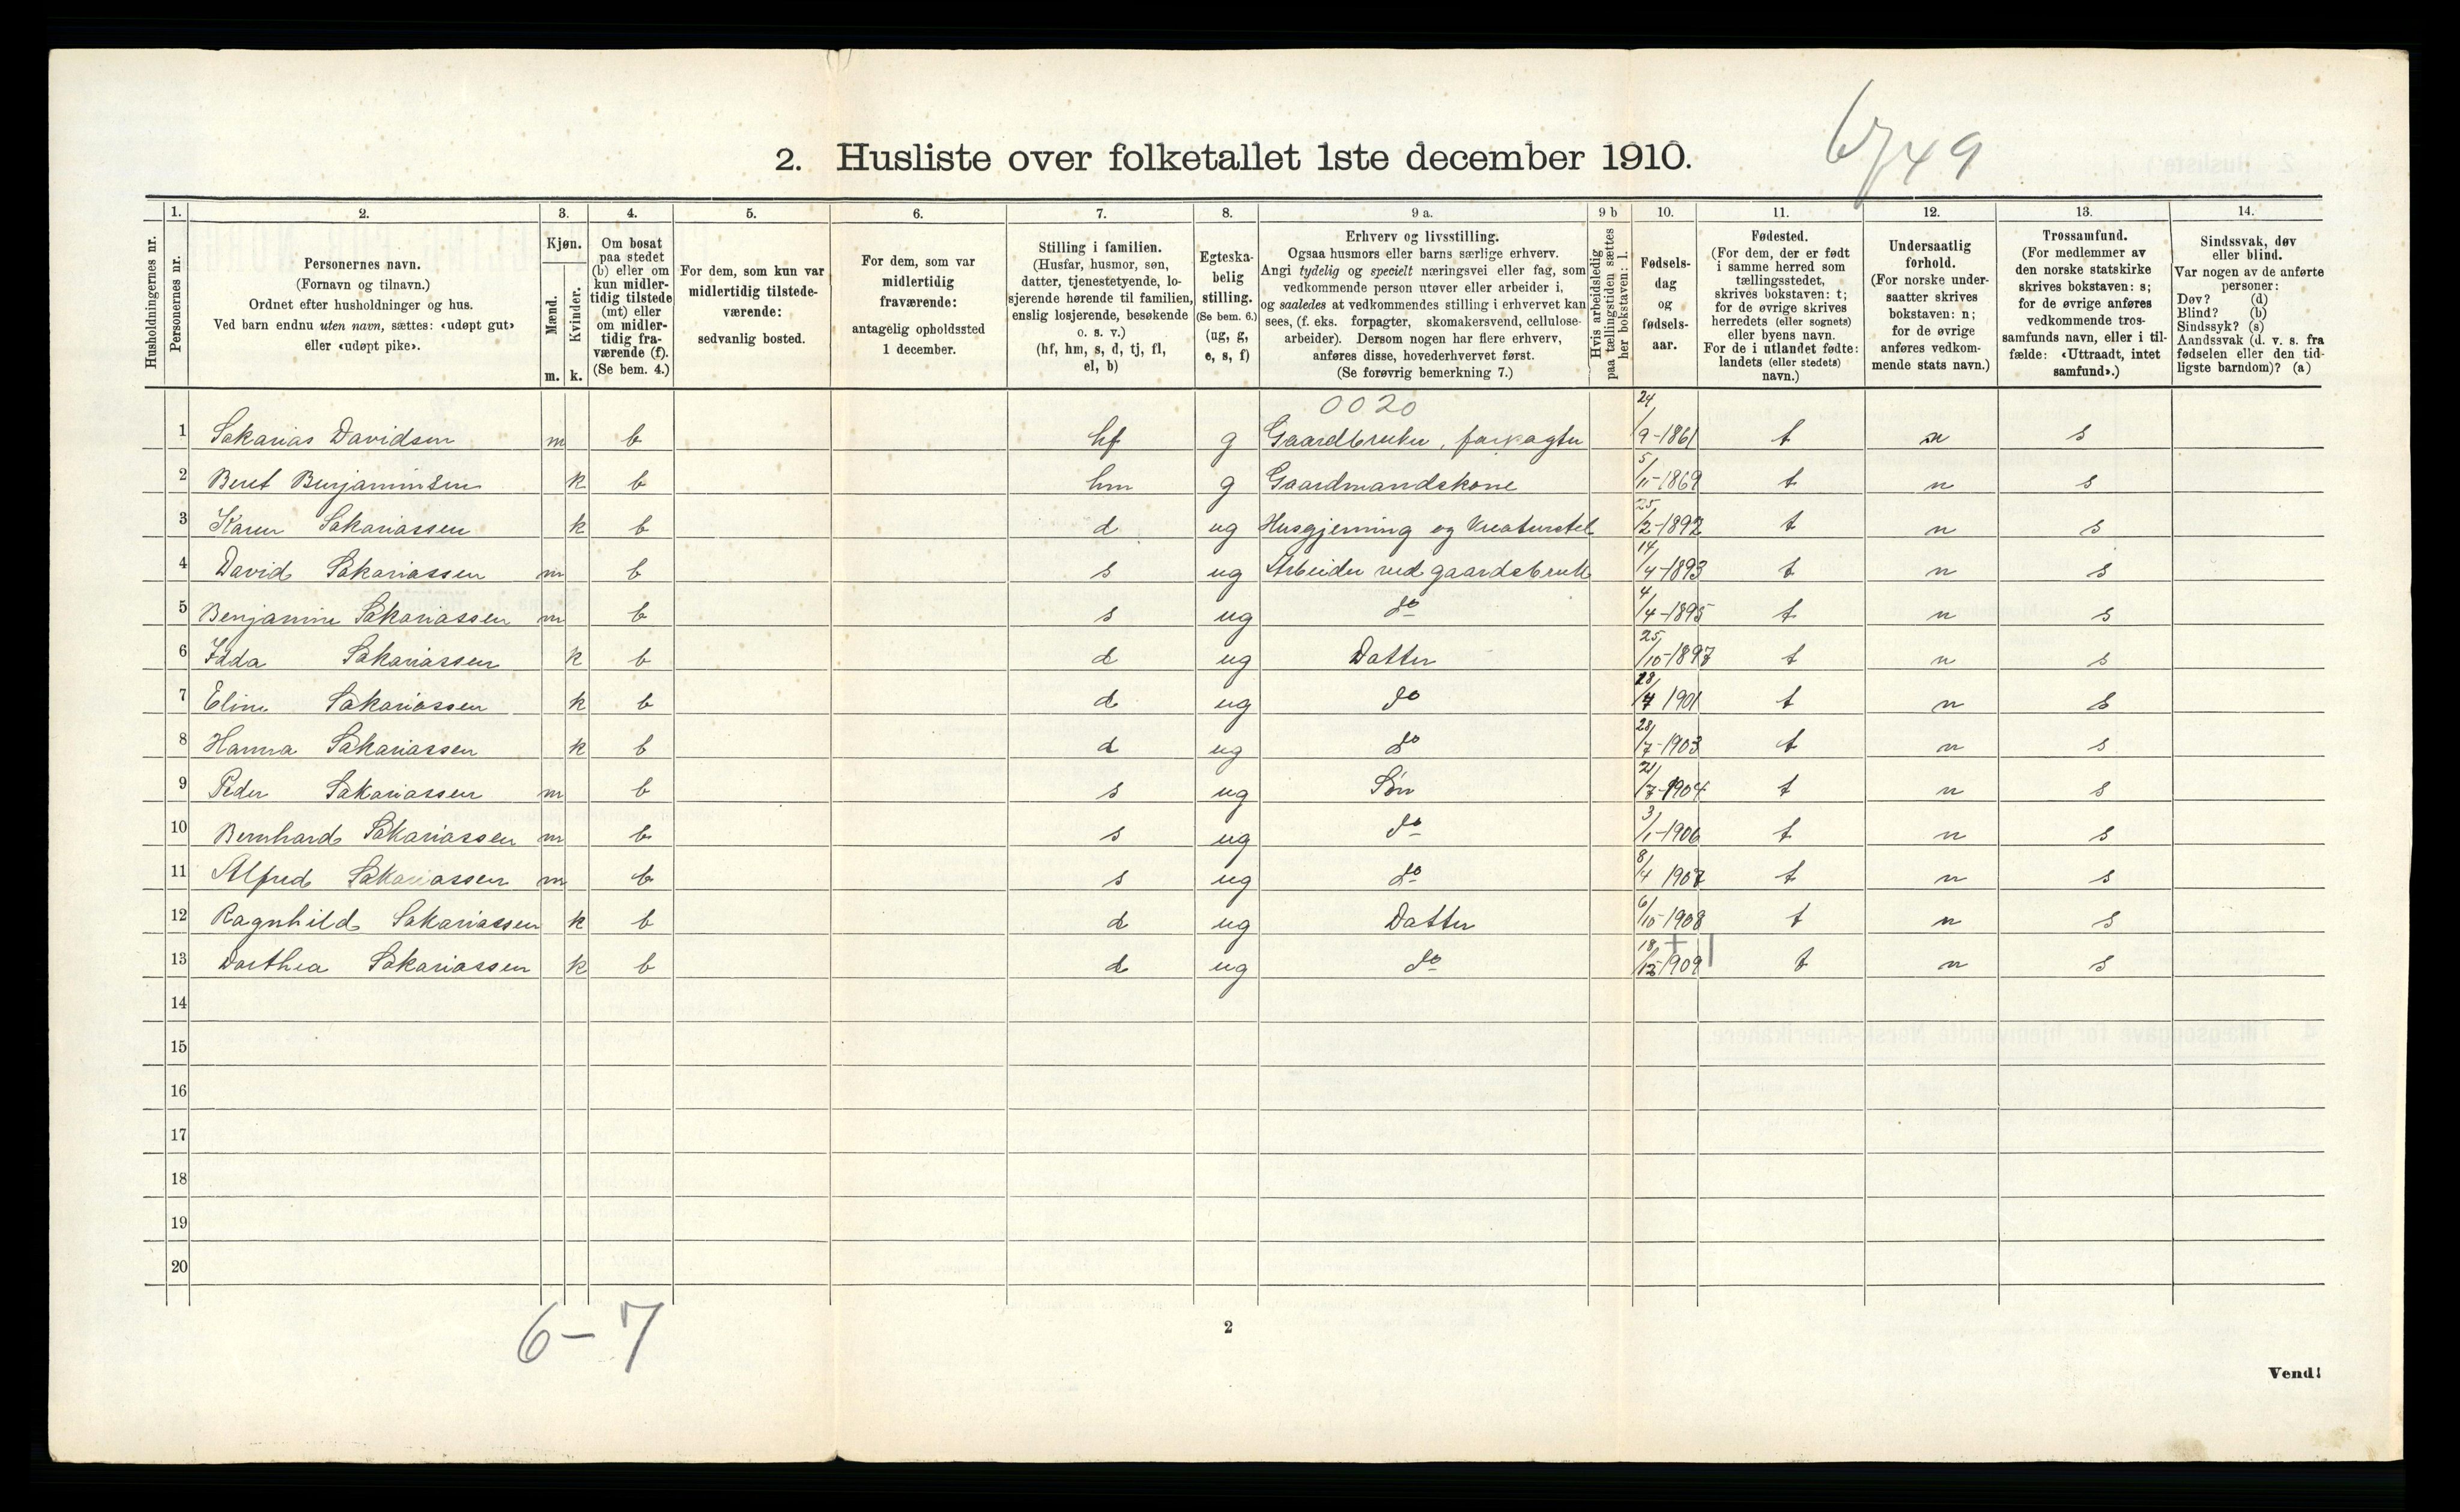 2. Husliste over folketallet 1ste december 1910.
6749
Husholdningernes nr.
1.
Personernes nr.
2.
Personernes navn.
(Fornavn og tilnavn.)
Ordnet efter husholdninger og hus.
Ved barn endnu uten navn, sættes: «udøpt gut»
eller «udøpt pike».
3.
Kjøn.
Mænd.
Kvinder.
m. k.
4.
Om bosat
paa stedet
(b) eller om
kun midler-
tidig tilstede
(mt) eller
om midler-
tidig fra-
værende (f).
(Se bem. 4.)
5.
For dem, som kun var
midlertidig tilstede-
værende:
sedvanlig bosted.
6.
For dem, som var
midlertidig
fraværende:
antagelig opholdssted
1 december.
7.
Stilling i familien.
(Husfar, husmor, søn,
datter, tjenestetyende, lo-
sjerende hørende til familien,
enslig losjerende, besøkende
o. s. v.)
(hf, hm, s, d, tj, fl,
el, b)
8.
Egteska-
belig
stilling.
(Se bem. 6.)
(ug, g,
e, s, f)
9 a.
Erhverv og livsstilling.
Ogsaa husmors eller barns særlige erhverv.
Angi tydelig og specielt næringsvei eller fag, som
vedkommende person utøver eller arbeider i,
og saaledes at vedkommendes stilling i erhvervet kan
sees, (f. eks. forpagter, skomakersvend, cellulose-
arbeider). Dersom nogen har flere erhverv,
anføres disse, hovederhvervet først.
(Se forøvrig bemerkning 7.)
9 b
Hvis arbeidsledig
paa tællingstiden sættes
her bokstaven: l.
10.
Fødsels-
dag
og
fødsels-
aar.
11.
Fødested.
(For dem, der er født
i samme herred som
tællingsstedet,
skrives bokstaven: t;
for de øvrige skrives
herredets (eller sognets)
eller byens navn.
For de i utlandet fødte:
landets (eller stedets)
navn.)
12.
Undersaatlig
forhold.
(For norske under-
saatter skrives
bokstaven: n;
for de øvrige
anføres vedkom-
mende stats navn.)
13.
Trossamfund.
(For medlemmer av
den norske statskirke
skrives bokstaven: s;
for de øvrige anføres
vedkommende tros-
samfunds navn, eller i til-
fælde: «Uttraadt, intet
samfund».)
14.
Sindssvak, døv
eller blind.
Var nogen av de anførte
personer:
Døv? (d)
Blind? (b)
Sindssyk? (s)
Aandssvak (d. v. s. fra
fødselen eller den tid-
ligste barndom)? (a)
0020
1 Sakarias Davidsen m b hf g Gaardbruker, forpagter 24/9-1861 t n s
2 Beret Benjaminsen k b hm g Gaardmandskone 5/11-1869 t n s
3 Karen Sakariassen k b d ug Husgjerning og Kreaturstel 25/2-1892 t n s
4 David Sakariassen m b s ug Arbeider ved gaardsbruk 14/4-1893 t n s
5 Benjamin Sakariassen m b s ug do 4/4-1895 t n s
6 Idda Sakariassen k b d ug Datter 25/10-1897 t n s
7 Eline Sakariassen k b d ug do 28/4 1901 t n s
8 Hanna Sakariassen k b d ug do 28/7-1903 t n s
9 Peder Sakariassen m b s ug Søn 21/7-1904 t n s
10 Bernhard Sakariassen m b s ug do 3/1-1906 t n s
11 Alfred Sakariassen m b s ug do 8/4 1907 t n s
12 Ragnhild Sakariassen k b d ug Datter 6/10-1908 t n s
13 Dorthea Sakariassen k b d ug do 18/12 1909 t n s
14
15
16
17
18
19
20
6-7
2
Vend!